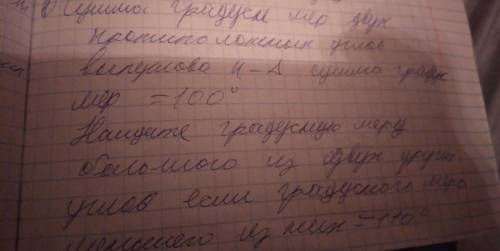 Сумма градусн мер двух
противоположных углов
выпуклова 4-А сумма градн
мер = 100°
Найдите градусную меру
большого из двух других
углов если градусного мера
меньшего из них = 110°